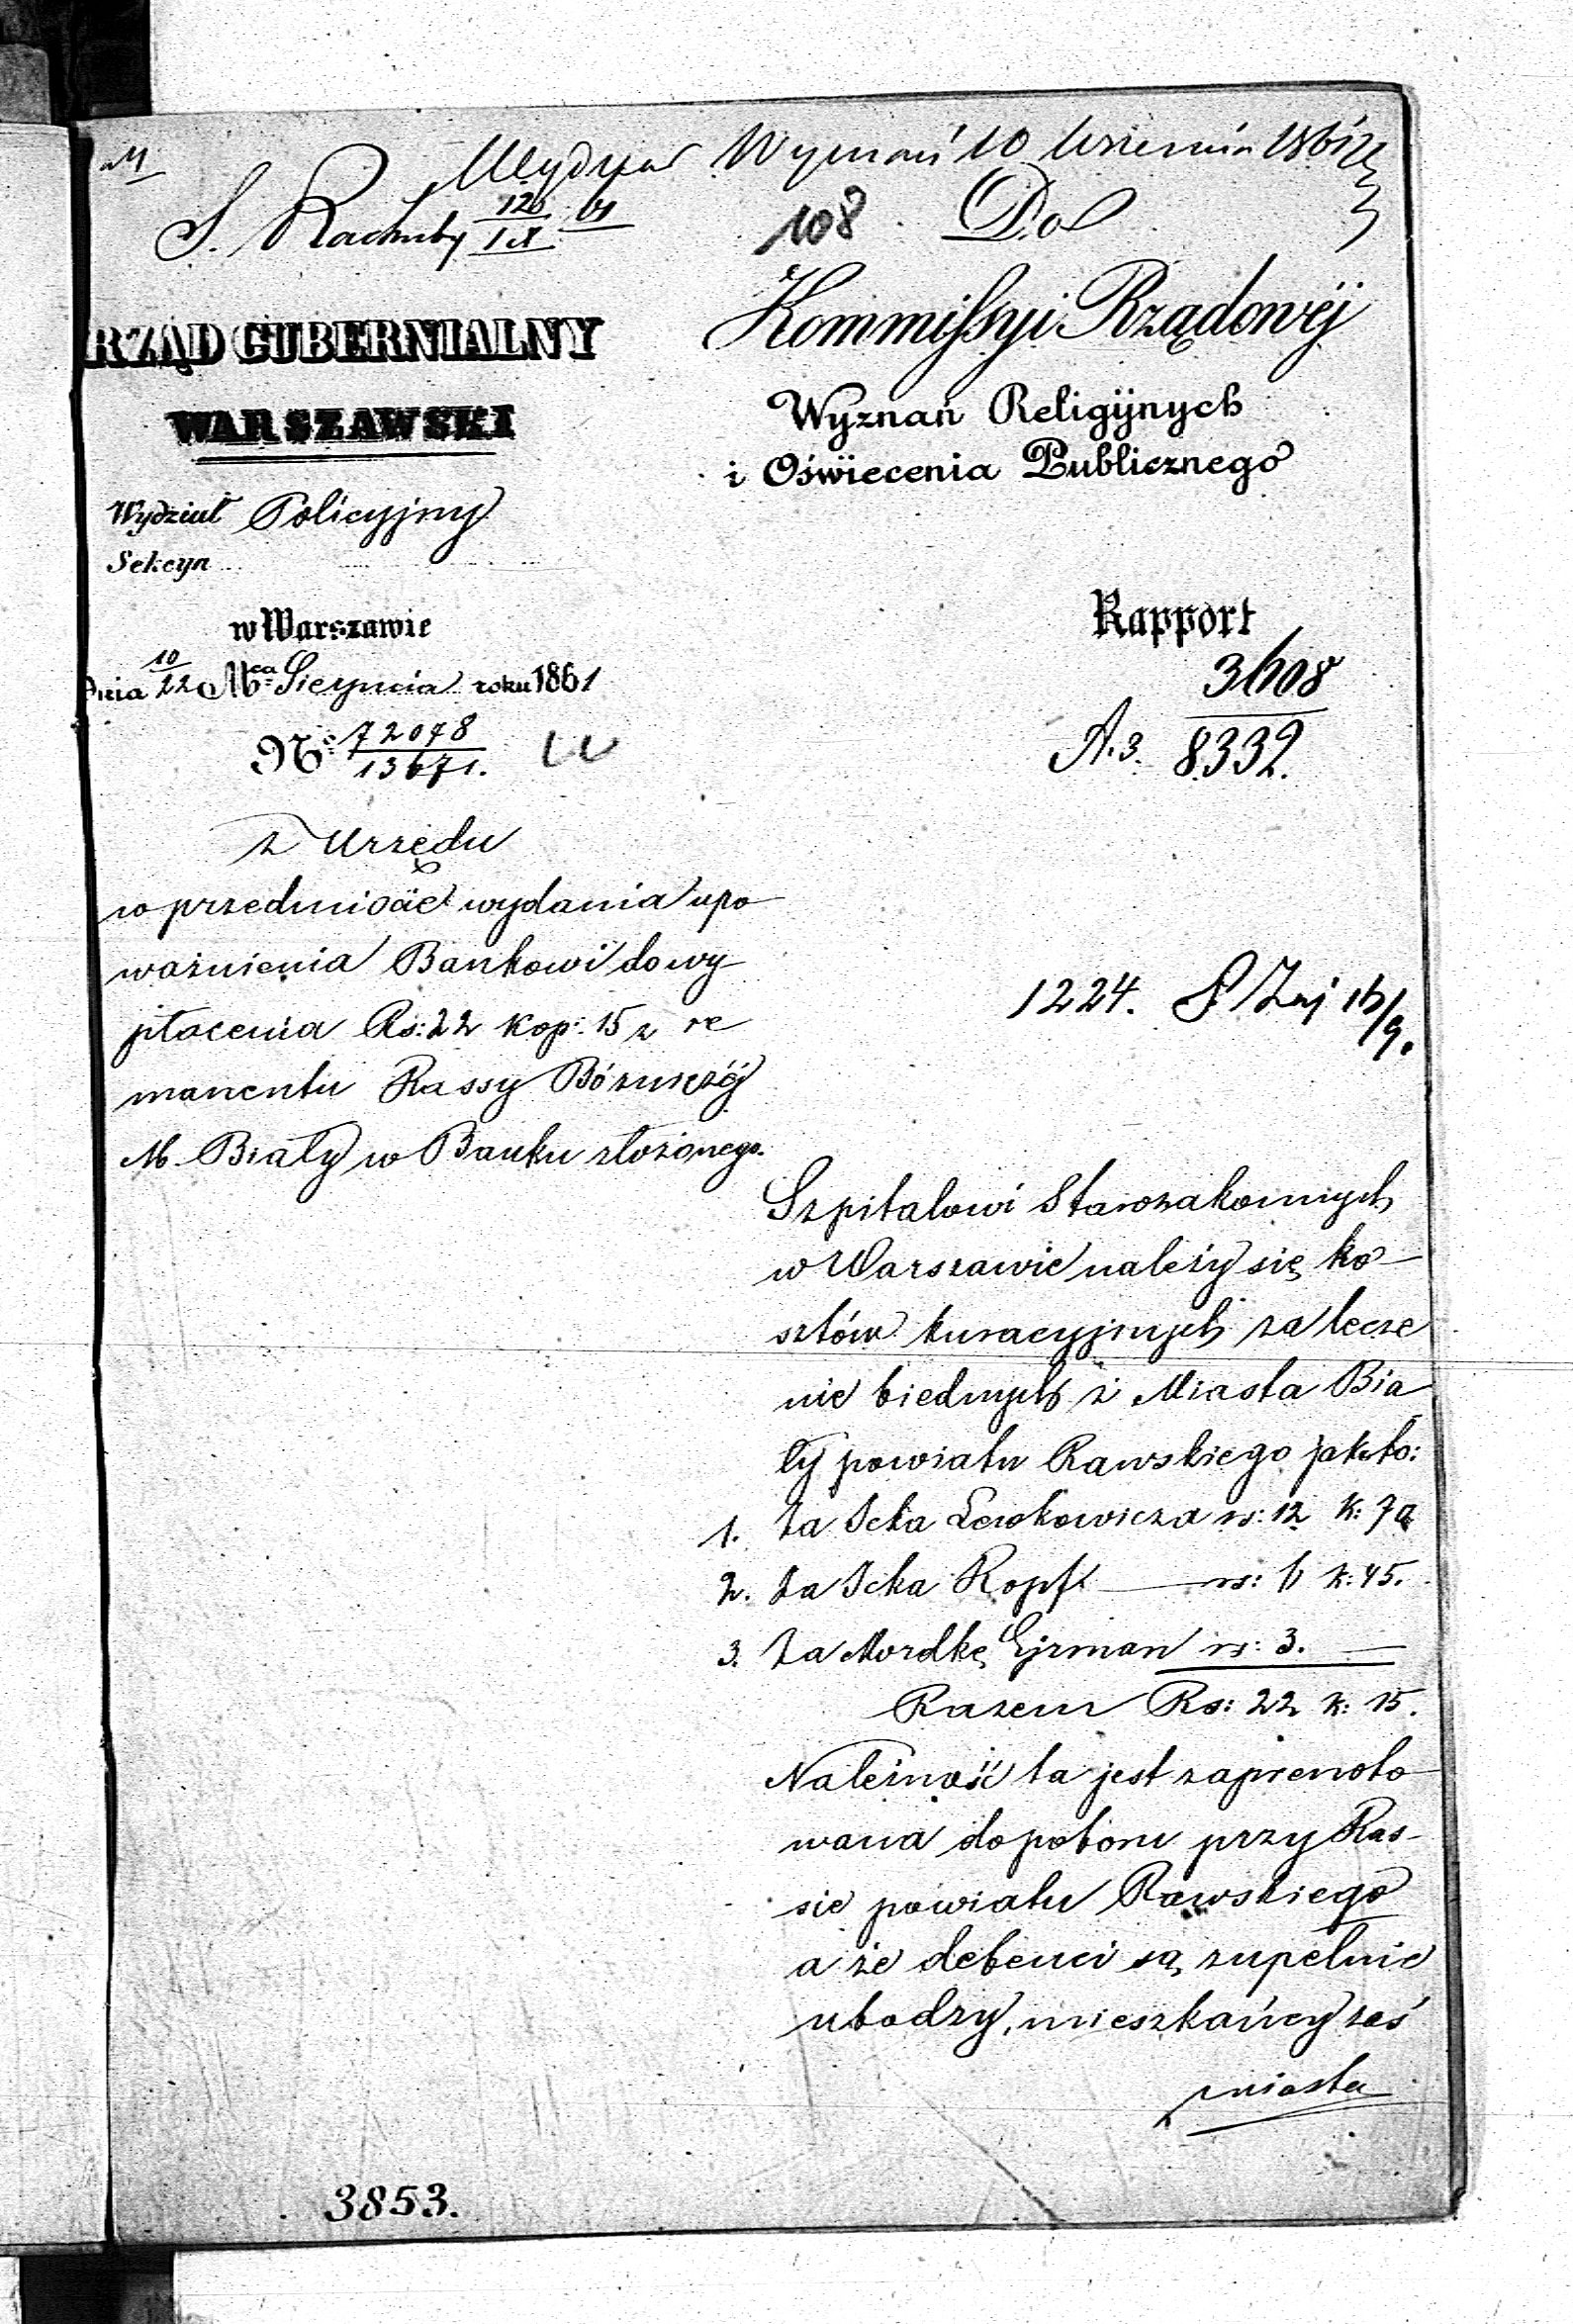 Wyznań 10 Września 1861 r
S. Rachuby
108
Do
Kommissyi Rządowéj
Wyznań Religijnych
i Oświecenia Publicznego
RZĄD GUBERNIALNY
WARSZAWSKI
Wydział Policyjny
Sekcya
w Warszawie
Dnia 10/22 Mca Sierpnia roku 1861
No 72078/13671.
Rapport
3608
A.3. 8332.
z Urzędu
w przedmiocie wydania upo
ważnienia Bankowi do wy-
płacenia Rs: 22 kop: 15 z re
manentu Kassy Bóżniczéj
M. Biały w Banku złożonego.
1224.
Szpitalowi Starozakonnych
w Warszawie należy się ko-
sztów kuracyjnych za lecze
nie biednych z Miasta Bia
ły powiatu Rawskiego jakoto:
1. Za Icka Lewkowicza rs: 12 k: 70
2. Za Icka Kopf rs: 6 k: 45.
3. Za Mordkę Ejzman rs: 3. —
Razem Rs: 22 k: 15.
Należność ta jest zaprenoto-
wana do poboru przy Kas-
sie powiatu Rawskiego
a że debenci są zupełnie
ubodzy, mieszkańcy zaś
miasta
3853.